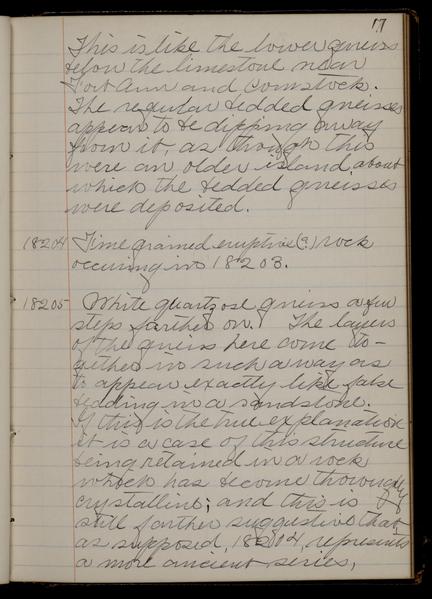 17
This is like the lower gneiss
below the limestone near
Fort Ann and Comstock.
The regular bedded gneisses
appear to be dipping away
from it, as though this
were an older island about
which the bedded gneisses
were deposited.
18204 Fine grained eruptive (?) rock
occuring in 18203.
18205 White quartzose gneiss a few
steps farther on. The layers
of the gneiss here come to-
gether in such a way as
to appear exactly like false
bedding in a sandstone.
If this is the true explanation
it is a case of this structure
being retained in a rock
which has become thoroughly
crystalline; and this is
still farther suggestive that
as supposed, 18204, represents
a more ancient series,